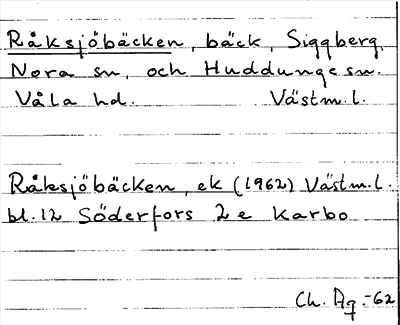 Råksjöbäcken, bäck, Siggberg,
Nora sn, och Huddunge sn.
Våla hd. Västm.l.
Råksjöbäcken, ek (1962) Västm.l.
bl.12 Söderfors 2 e Karbo
Ch. Ag.-62